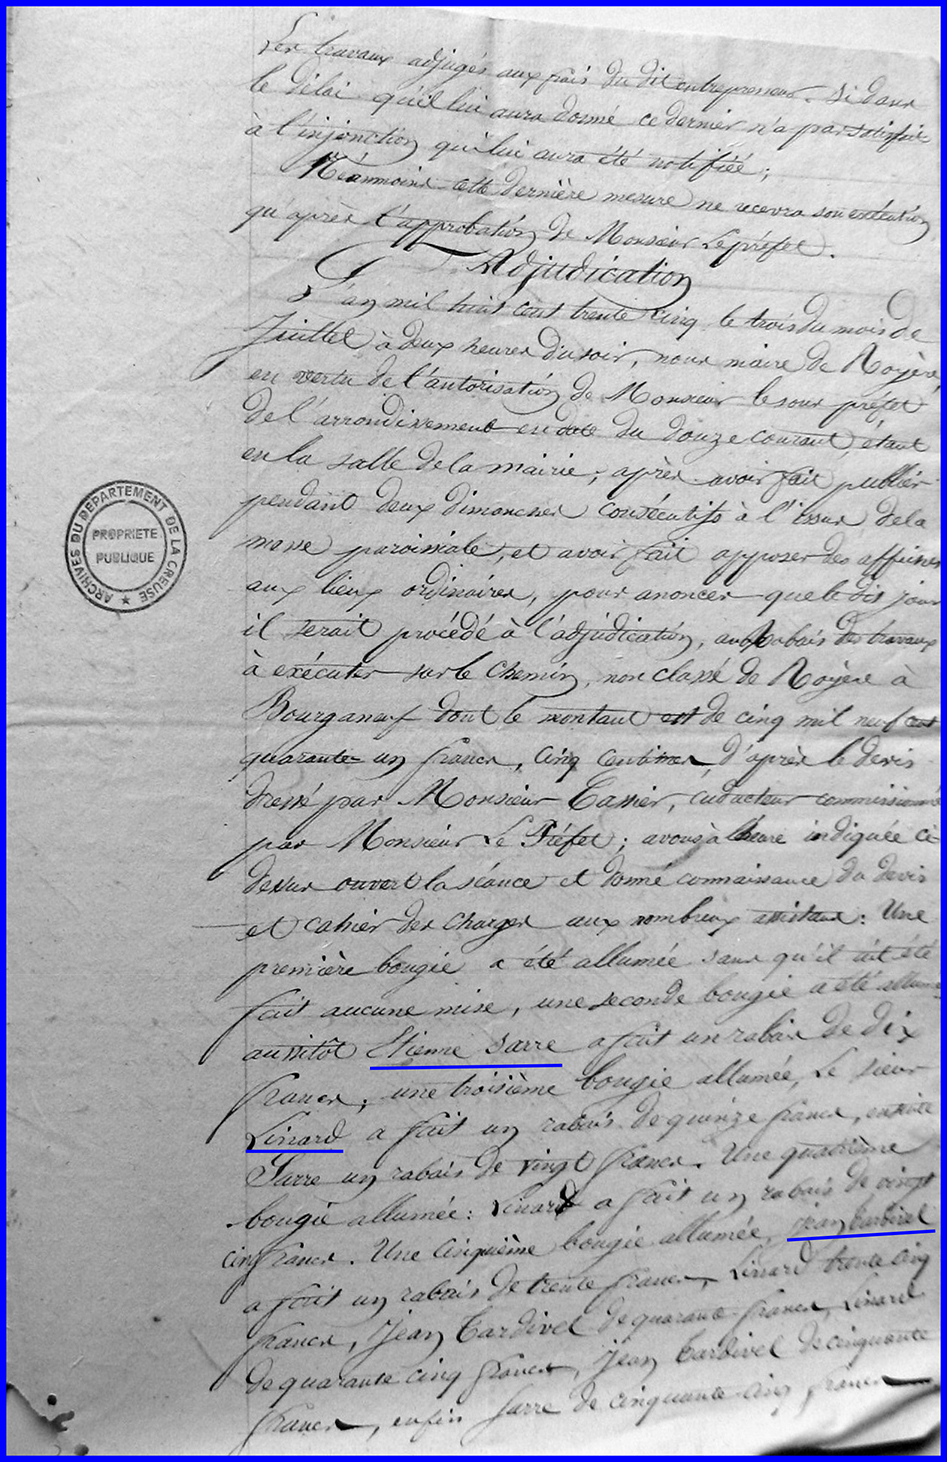 Les travaux adjugés aux frais du dit entrepreneur. Si dans
le délai qu'il lui aura donné ce dernier n'a pas satisfait
à l'injonction qui lui aura été notifiée ;
Néanmoins cette dernière mesure ne recevra son exécution
qu'après l'approbation de Monsieur Le préfet.
Adjudication
L'an mil huit cent trente cinq le trois du mois de
Juillet à deux heures du soir, nous maire de Royère,
en vertu de l'autorisation de Monsieur le sous préfet
de l'arrondissement en date du douze courant, étant
en la salle de la mairie, après avoir fait publier
pendant deux dimanches consécutifs à l'issue de la
messe paroissiale, et avoir fait apposer des affiches
aux lieux ordinaires, pour anoncer que le dit jour
il serait procédé à l'adjudication, au rabais des travaux
à exécuter sur le chemin, non classé de Royère à
Bourganeuf dont le montant est de cinq mil neuf cent
quarante un francs, cinq centimes, d'après le devis
dressé par Monsieur Cassier, commissionné
par Monsieur Le Préfet ; avons à l'heure indiquée ci
dessus ouvert la séance et donné connaissance du devis
et cahier des charges aux nombreux assistans : Une
première bougie a été allumée sans qu'il ait été
fait aucune mise, une seconde bougie a été allumée
aussitôt Etienne Sarre a fait un rabais de dix
francs ; une troisième bougie allumée, Le sieur
Linard a fait un rabais de quinze francs, ensuite
Sarre un rabais de vingt francs. Une quatrième
bougie allumée : Linard a fait un rabais de vingt
cinq francs. Une cinquième bougie allumée, jean bardivel
a fait un rabais de trente francs, Linard trente cinq
francs, Jean bardivel de quarante francs, Linard
de quarante cinq francs, jean bardivel de cinquante
francs, enfin Sarre de cinquante cinq francs
ARCHIVES DU DÉPARTEMENT DE LA CREUSE
PROPRIETE
PUBLIQUE